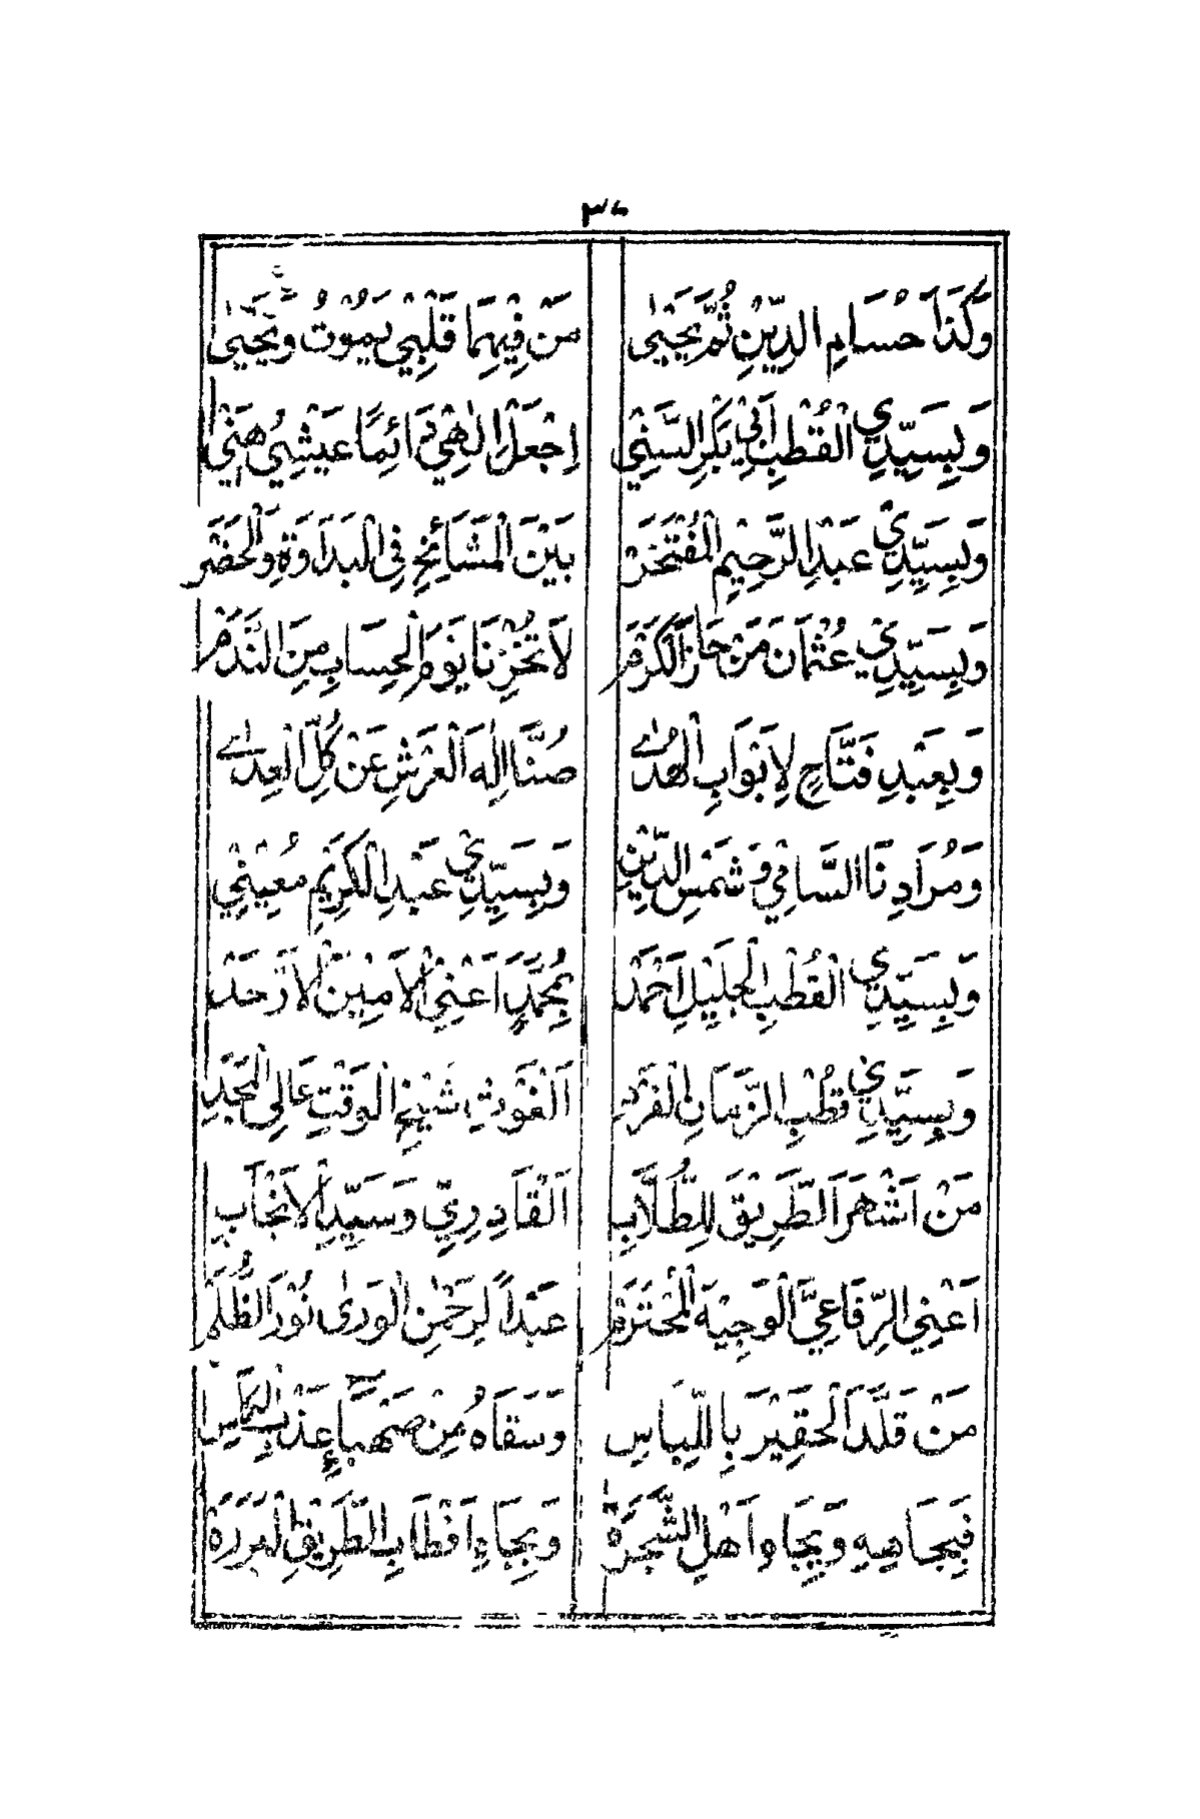 وَكَذَا حُسَامِ الدِّيْنِ ثُمَّ يَحْيَىٰ مَنْ فِيهِمَا قَلْبِي يَمُوْتُ وَيَحْيَىٰ
وَبِسَيِّدِي الْقُطْبِ اَبِي بَكْرِ السَّنِيْ اِجْعَلْ اِلٰهِيْ دَائِمًا عَيْشِيْ هَنِيْ
وَبِسَيِّدِيْ عَبْدِ الرَّحِيْمِ الْمُفْتَخَرْ بَيْنَ الْمَشَائِخِ فِي الْبَدَاوَةِ وَالْحَضَرْ
وَبِسَيِّدِيْ عُثْمَانَ مَنْ حَازَ الْكَرَمْ لَا تُخْزِنَا يَوْمَ الْحِسَابِ مِنَ النَّدَمْ
وَبِعَبْدِ فَتَّاحٍ لِاَبْوَابِ الْهُدٰى صُنَّا اِلٰهَ الْعَرْشِ عَنْ كُلِّ الْعِدٰى
وَمُرَادِنَا السَّامِيْ وَشَمْسِ الدِّيْنِ وَبِسَيِّدِيْ عَبْدِ الْكَرِيْمِ مُعِيْنِيْ
وَبِسَيِّدِي الْقُطْبِ الْجَلِيْلِ اَحْمَدْ بِمُحَمَّدٍ اَعْنِي الْاَمِيْنَ الْاَوْحَدْ
وَبِسَيِّدِيْ قُطْبِ الزَّمَانِ الْفَرْدِ اَلْغَوْثِ شَيْخِ الْوَقْتِ عَالِي الْمَجْدِ
مَنْ اَشْهَرَ الطَّرِيْقَ لِلطُّلَّابِ اَلْقَادِرِيِّ وَسَيِّدِ الْاَنْجَابِ
اَعْنِي الرِّفَاعِيَّ الْوَجِيْهَ الْمُحْتَرَمْ عَبْدًا لِرَحْمٰنِ الْوَرٰى نُوْرَ الظُّلَمْ
مَنْ قَلَّدَ الْحَقِيْرَ بِاللِّبَاسِ وَسَقَاهُ مِنْ صَهْبَاءِ عَذْبِ الْكَاسِ
فَبِجَاهِهِ وَبِجَاهِ اَهْلِ الشَّجَرَةْ وَبِجَاهِ اَقْطَابِ الطَّرِيْقِ الْبَرَرَةْ